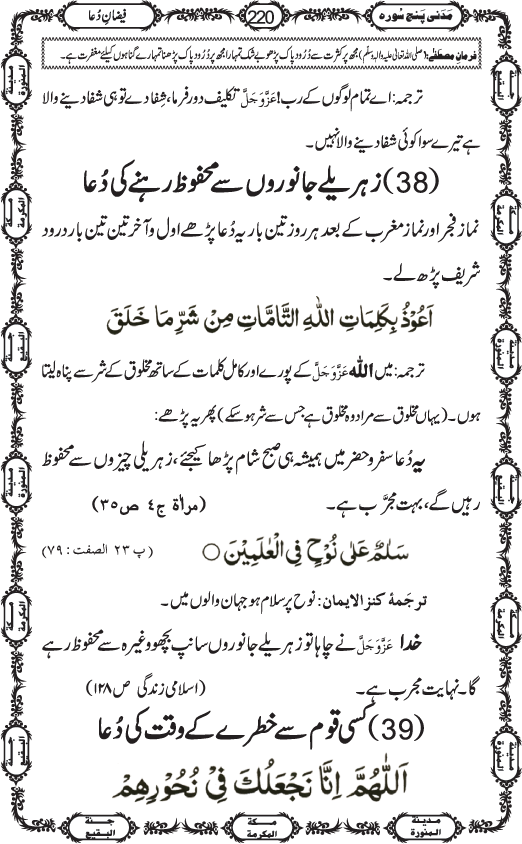 مَدَنی پَنج سُورہ
220
فیضانِ دُعا
فرمانِ مصطفٰے: (صلی اللہ تعالیٰ علیہ واٰلہٖ وسلّم) مجھ پر کثرت سے دُرُودِ پاک پڑھو بے شک تمہارا مجھ پر دُرُودِ پاک پڑھنا تمہارے گناہوں کیلئے مغفرت ہے۔
ترجمہ: اے تمام لوگوں کے رب! عَزَّوَجَلَّ تکلیف دور فرما، شِفا دے تو ہی شفا دینے والا
ہے تیرے سوا کوئی شفا دینے والا نہیں۔
(38) زہریلے جانوروں سے محفوظ رہنے کی دُعا
نمازِ فجر اور نمازِ مغرب کے بعد ہر روز تین بار یہ دُعا پڑھے اول و آخر تین تین بار درود
شریف پڑھ لے۔
اَعُوْذُ بِكَلِمَاتِ اللّٰهِ التَّامَّاتِ مِنْ شَرِّ مَا خَلَقَ
ترجمہ: میں اللّٰه عَزَّوَجَلَّ کے پورے اور کامل کلمات کے ساتھ مخلوق کے شر سے پناہ لیتا
ہوں۔ (یہاں مخلوق سے مراد وہ مخلوق ہے جس سے شر ہو سکے) پھر یہ پڑھے:
یہ دُعا سفر و حضر میں ہمیشہ ہی صبح شام پڑھا کیجئے، زہریلی چیزوں سے محفوظ
رہیں گے، بہت مجرَّب ہے۔ (مراٰۃ ج٤ ص٣٥)
سَلٰمٌ عَلٰى نُوْحٍ فِی الْعٰلَمِیْنَ ○ (پ ۲۳ الصفت : ۷۹)
ترجَمۂ کنزالایمان: نوح پر سلام ہو جہان والوں میں۔
خدا عَزَّوَجَلَّ نے چاہا تو زہریلے جانوروں سانپ بچھو وغیرہ سے محفوظ رہے
گا۔ نہایت مجرب ہے۔ (اسلامی زندگی ص۱۲۸)
(39) کسی قوم سے خطرے کے وقت کی دُعا
اَللّٰهُمَّ اِنَّا نَجْعَلُكَ فِیْ نُحُوْرِهِمْ
مدینۃ المنورۃ
مکۃ المکرمۃ
جنۃ البقیع
مدینۃ المنورۃ
مکۃ المکرمۃ
جنۃ البقیع
جنۃ البقیع
مکۃ المکرمۃ
مدینۃ المنورۃ
جنۃ البقیع
مکۃ المکرمۃ
مدینۃ المنورۃ
مدینۃ المنورۃ
مکۃ المکرمۃ
جنۃ البقیع